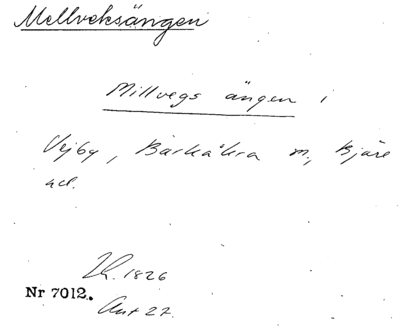 Mellveksängen
Millvegs ängen i
Vejby, Barkåkra m., Bjäre
hd.
Lh. 1826
Nr 7012.
Akt 27.